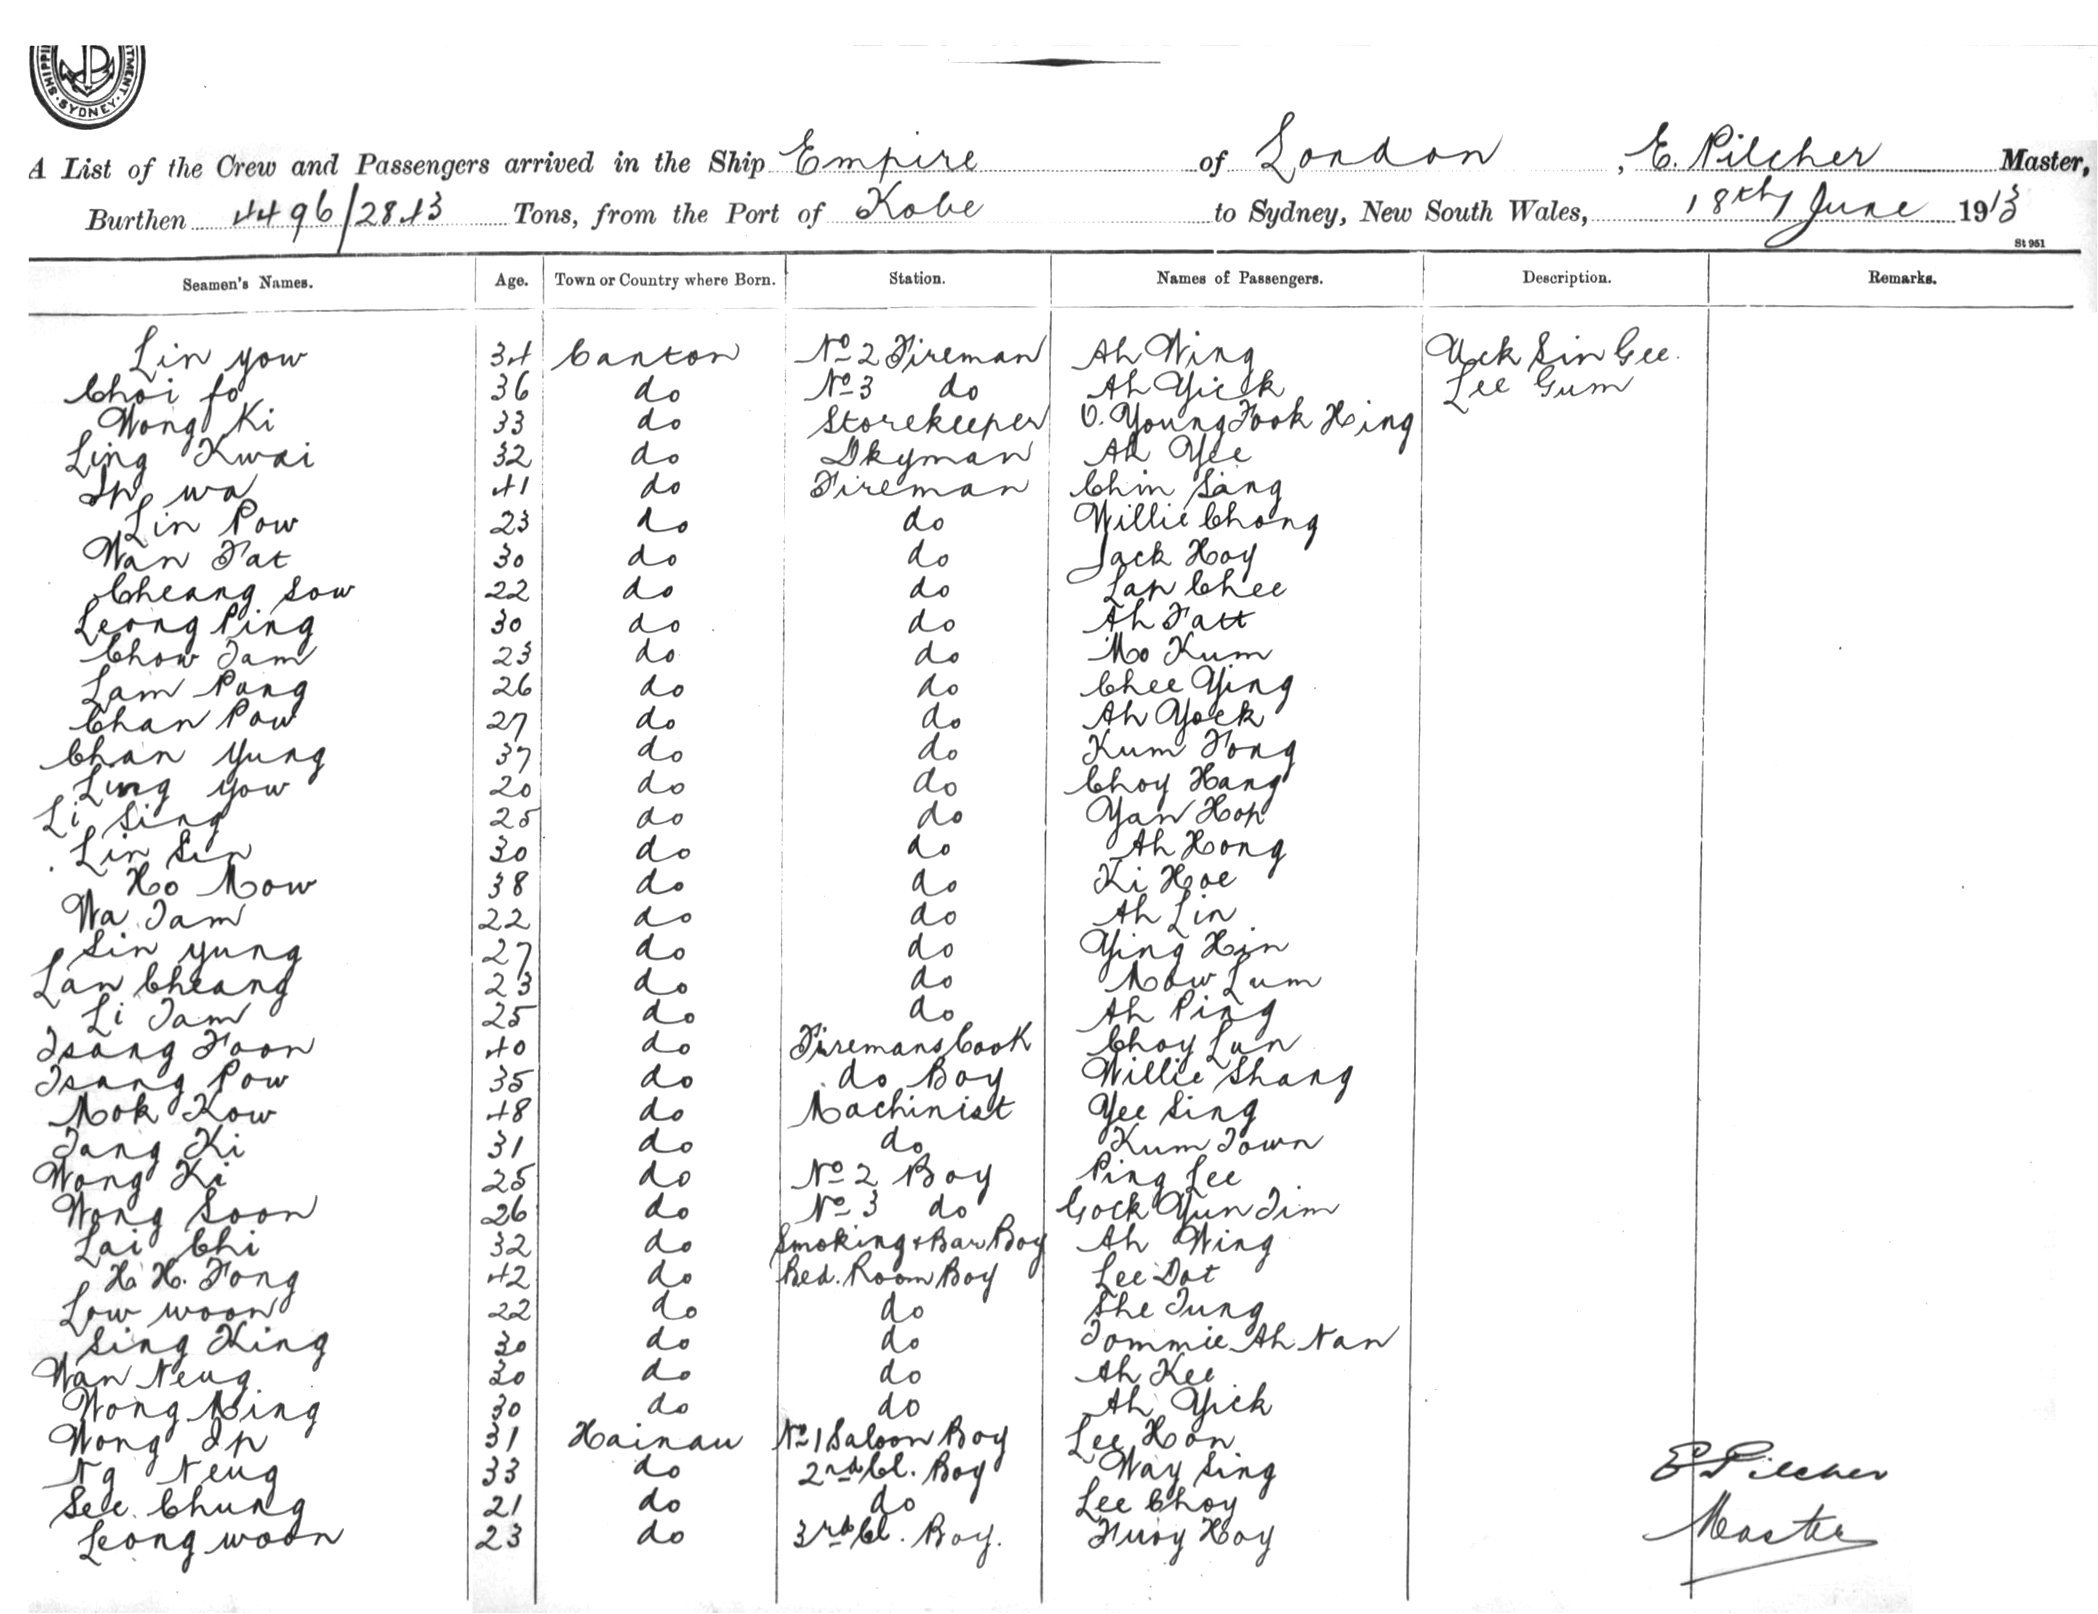 SHIPPI TMENT SYDNEY
A List of the Crew and Passengers arrived in the Ship Empire of London, E. Pilcher Master,
Burthen 4496/2843 Tons, from the Port of Kobe to Sydney, New South Wales, 18th June 1913
St 951
Seamen's Names. Age. Town or Country where Born. Station. Names of Passengers. Description. Remarks.
Lin you 34 Canton No 2 Fireman Ah Wing Uck Sin Gee.
Choi fo 36 do No 3 do Ah Yick Lee Gum
Wong Ki 33 do Storekeeper O. Young Fook Hing
Ling Kwai 32 do Dkyman Ah Yee
Ip wa 41 do Fireman Chin Sang
Lin Pow 23 do do Willie Chong
Wan Fat 30 do do Jack Hoy
Cheang Sow 22 do do Lap Chee
Leong Ping 30 do do Ah Fatt
Chow Tam 23 do do Mo Kum
Lam Pong 26 do do Chee Ying
Chan Pow 27 do do Ah Yock
Chan Yung 37 do do Kum Fong
Ling you 20 do do Choy Hang
Li Sing 25 do do Yan Hop
Lin Sin 30 do do Ah Hong
Ho Mow 38 do do Ki Hoe
Wa Tam 22 do do Ah Lin
Sin yung 27 do do Ying Hin
Lan Cheang 23 do do Mow Lum
Li Tam 25 do do Ah Ping
Tsang Foon 40 do Firemans Cook Choy Lun
Tsang Pow 35 do do Boy Willie Shang
Mok Kow 48 do Machinist Yee Sing
Tang Ki 31 do do Kum Town
Wong Ki 25 do No 2 Boy Ping Lee
Wong Soon 26 do No 3 do Gock Yun Tim
Lai Chi 32 do Smoking & Bar Boy Ah Wing
H. H. Fong 42 do Bed. Room Boy Lee Dot
Low woon 22 do do She Tung
Sing King 30 do do Tommie Ah Nan
Wan Neug 30 do do Ah Kee
Wong Ming 30 do do Ah Yick
Wong Ip 31 Hainau No 1 Saloon Boy Lee Hon
Ng Neug 33 do 2nd Cl. Boy Way Sing
See Chung 21 do do Lee Choy
Leong woon 23 do 3rd Cl. Boy. Fuoy Hoy
E Pilcher
Master